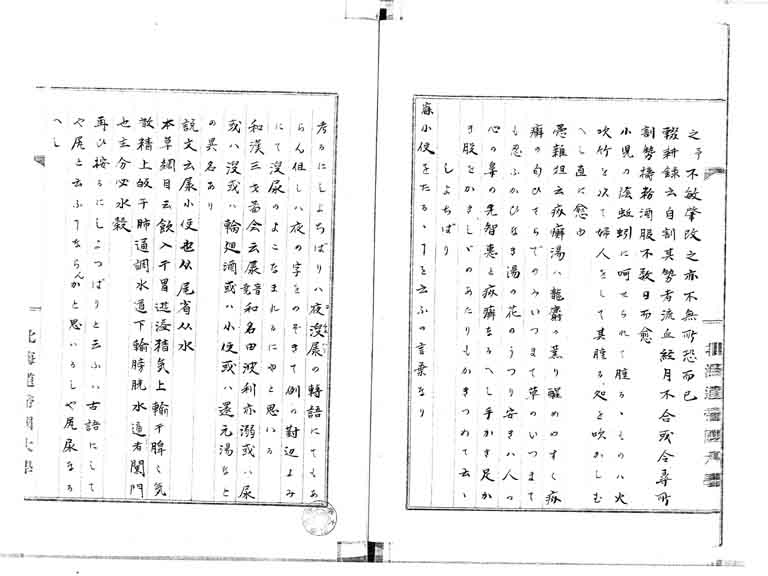 之ヲ不敏肇改之亦不無所恐而已
輟耕録云自割其勢者流血経月不合或令尋所
割勢擣粉酒服不数日而愈
小児の陰蚯蚓に呵せられて腫るゝものハ火
吹竹を以て婦人をして其腫る処を吹かしむ
へし直に愈ゆ
愚難坦云疝癖湯ハ龍齋の薫り醒めのすく疝
癖の匂ひてらでのみいつまて草のいつまて
も忍ふかひなき湯の花のうつり安きハ人の
心の鼻の先智恵と疝癖をるへし手かき足か
き股をかきしゝのあたりもかきつめて云ゝ
しよちばり
寐小便をたるゝ事を云ふの言葉なり
考るにしよちばりハ夜溲尿の轉語にてもあ
らん但しハ夜の字をのぞきて例の對辺よみ
にて溲尿のよこなまれるにやと思いる
和漢三才圖会云尿音和名由波利亦溺或ハ尿
或ハ溲或ハ輪廻酒或ハ小便或ハ還元湯など
の異名あり
説文云尿小便也从尾省从水
本草綱目云飲入于胃遊溢精気上輸于脾々気
散精上皈于肺通調水道下輸膀胱水道者闌門
也主分泌水穀
再ひ按るにしよつばりと云ふハ古語にして
や尿と云ふてならんかと思いるしや尻尿なる
へし
北海道帝國大學